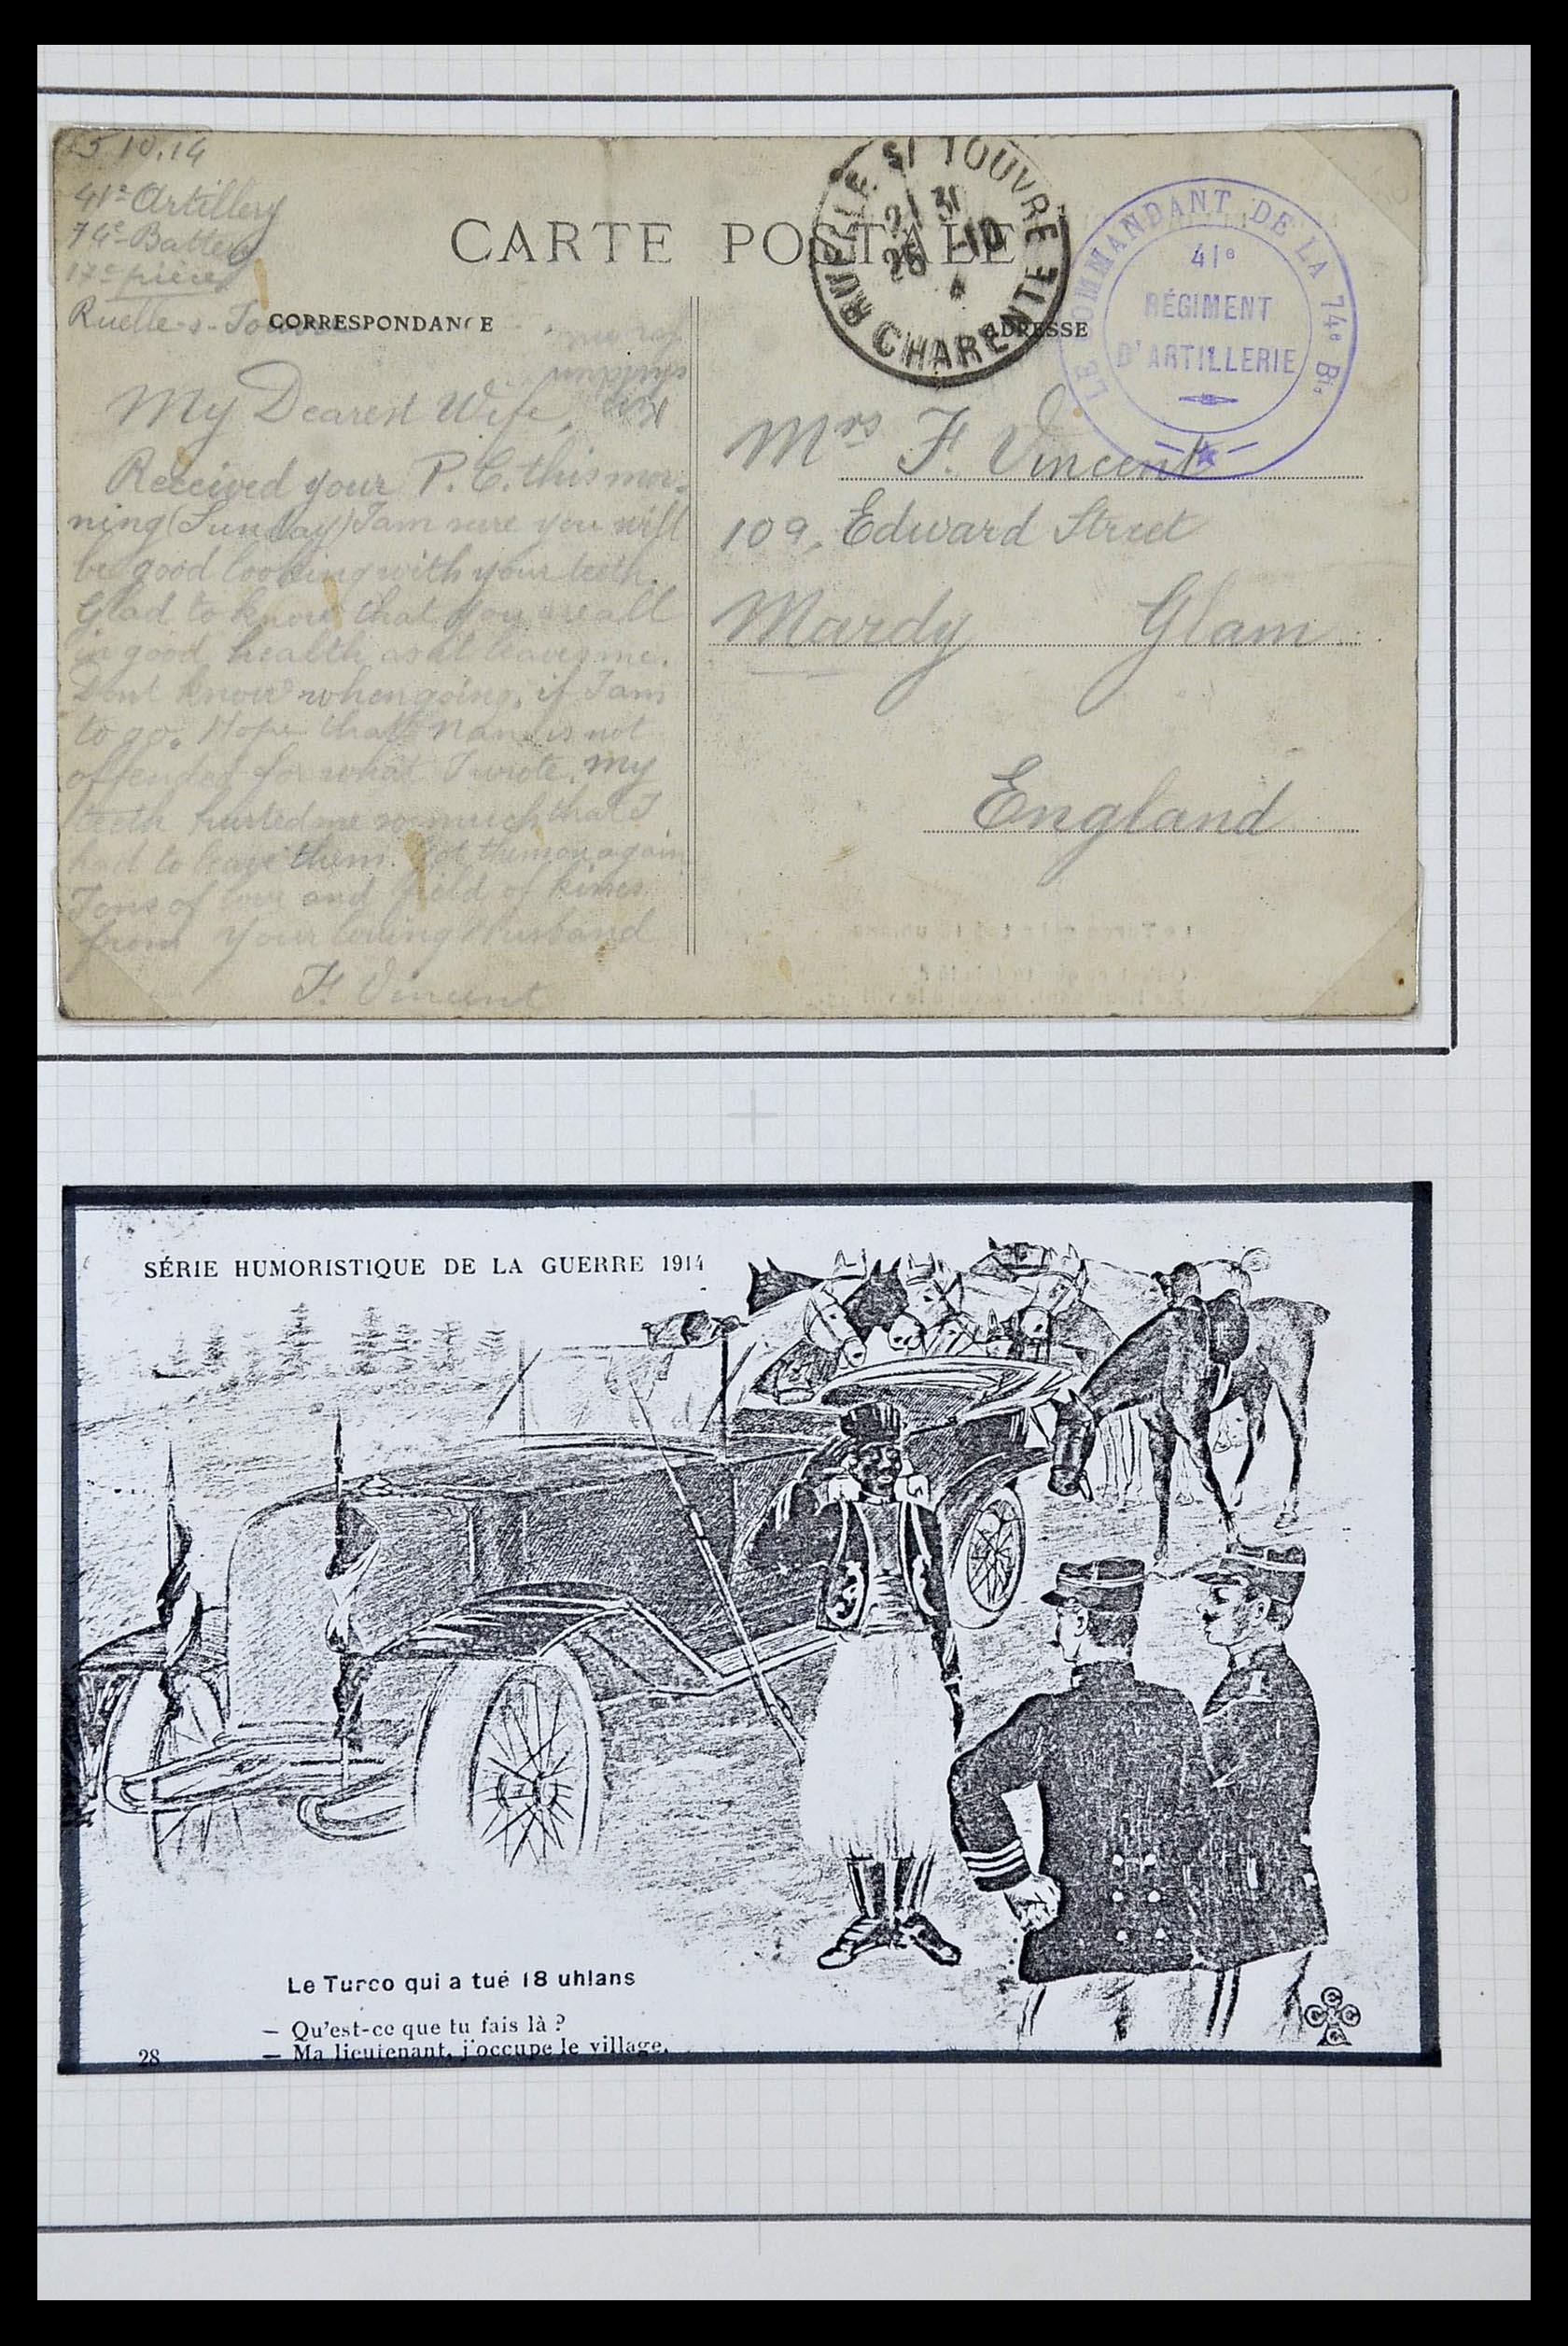 25.10.14
41e Artillery
74e Battery
17e pièce
Ruelle-s-Touvre
CARTE POSTALE
CORRESPONDANCE
ADRESSE
RUELLE SI TOUVRE
21 31
25 -10
CHARENTE
LE COMMANDANT DE LA 74e Bie
41e
RÉGIMENT
D'ARTILLERIE
Kiss
children
for me
My Dearest Wife,
Received your P.C. this mor-
ning (Sunday) I am sure you will
be good looking with your teeth.
Glad to know that you are all
in good health as it leaves me.
Dont know when going, if I am
to go. Hope that Nan is not
offended for what I wrote. My
teeth hurted me so much that I
had to leave them. Got them on again
Tons of love and field of kisses
from Your loving Husband
F. Vincent
Mrs F. Vincent
109, Edward Street
Mardy Glam
England
SÉRIE HUMORISTIQUE DE LA GUERRE 1914
Le Turco qui a tué 18 uhlans
— Qu'est-ce que tu fais là ?
— Ma lieutenant, j'occupe le village.
28
C C C C